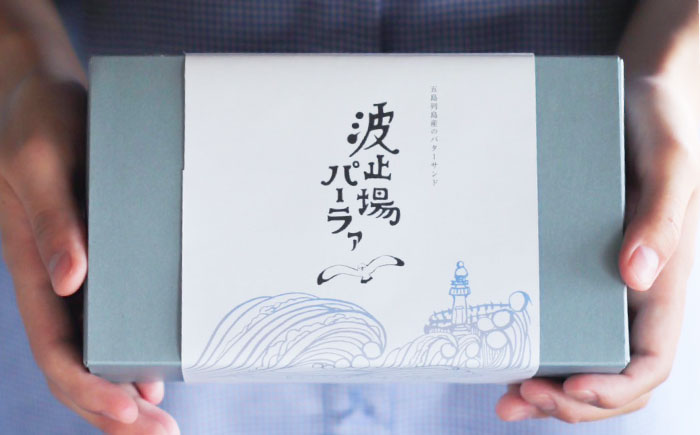 五島列島産のバターサンド
波止場
パーラァ